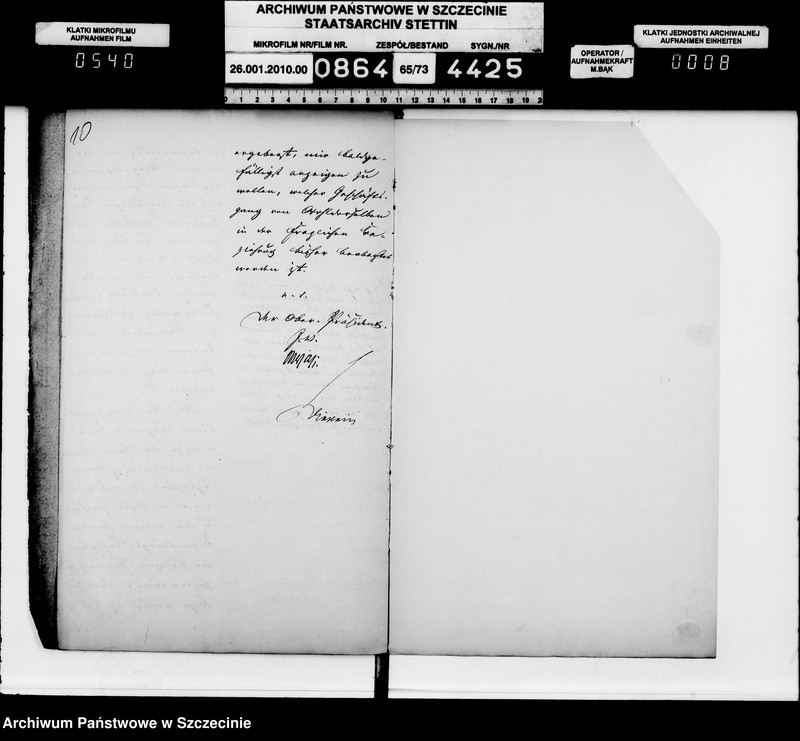 ARCHIWUM PAŃSTWOWE W SZCZECINIE
STAATSARCHIV STETTIN
KLATKI MIKROFILMU
AUFNAHMEN FILM
0540
MIKROFILM NR/FILM NR. ZESPÓŁ/BESTAND SYGN./NR
26.001.2010.00 0864 65/73 4425
OPERATOR /
AUFNAHMEKRAFT
M.BĄK
KLATKI JEDNOSTKI ARCHIWALNEJ
AUFNAHMEN EINHEITEN
0008
0 1 2 3 4 5 6 7 8 9 10 11 12 13 14 15 16 17 18 19 2
10
ergebenst, mir baldge-
fälligst anzeigen zu
wollen, welcher Geschäfts-
gang von Wohlderselben
in der fraglichen Be-
ziehung bisher beobachtet
worden ist.
Der Ober-Präsident.
Archiwum Państwowe w Szczecinie